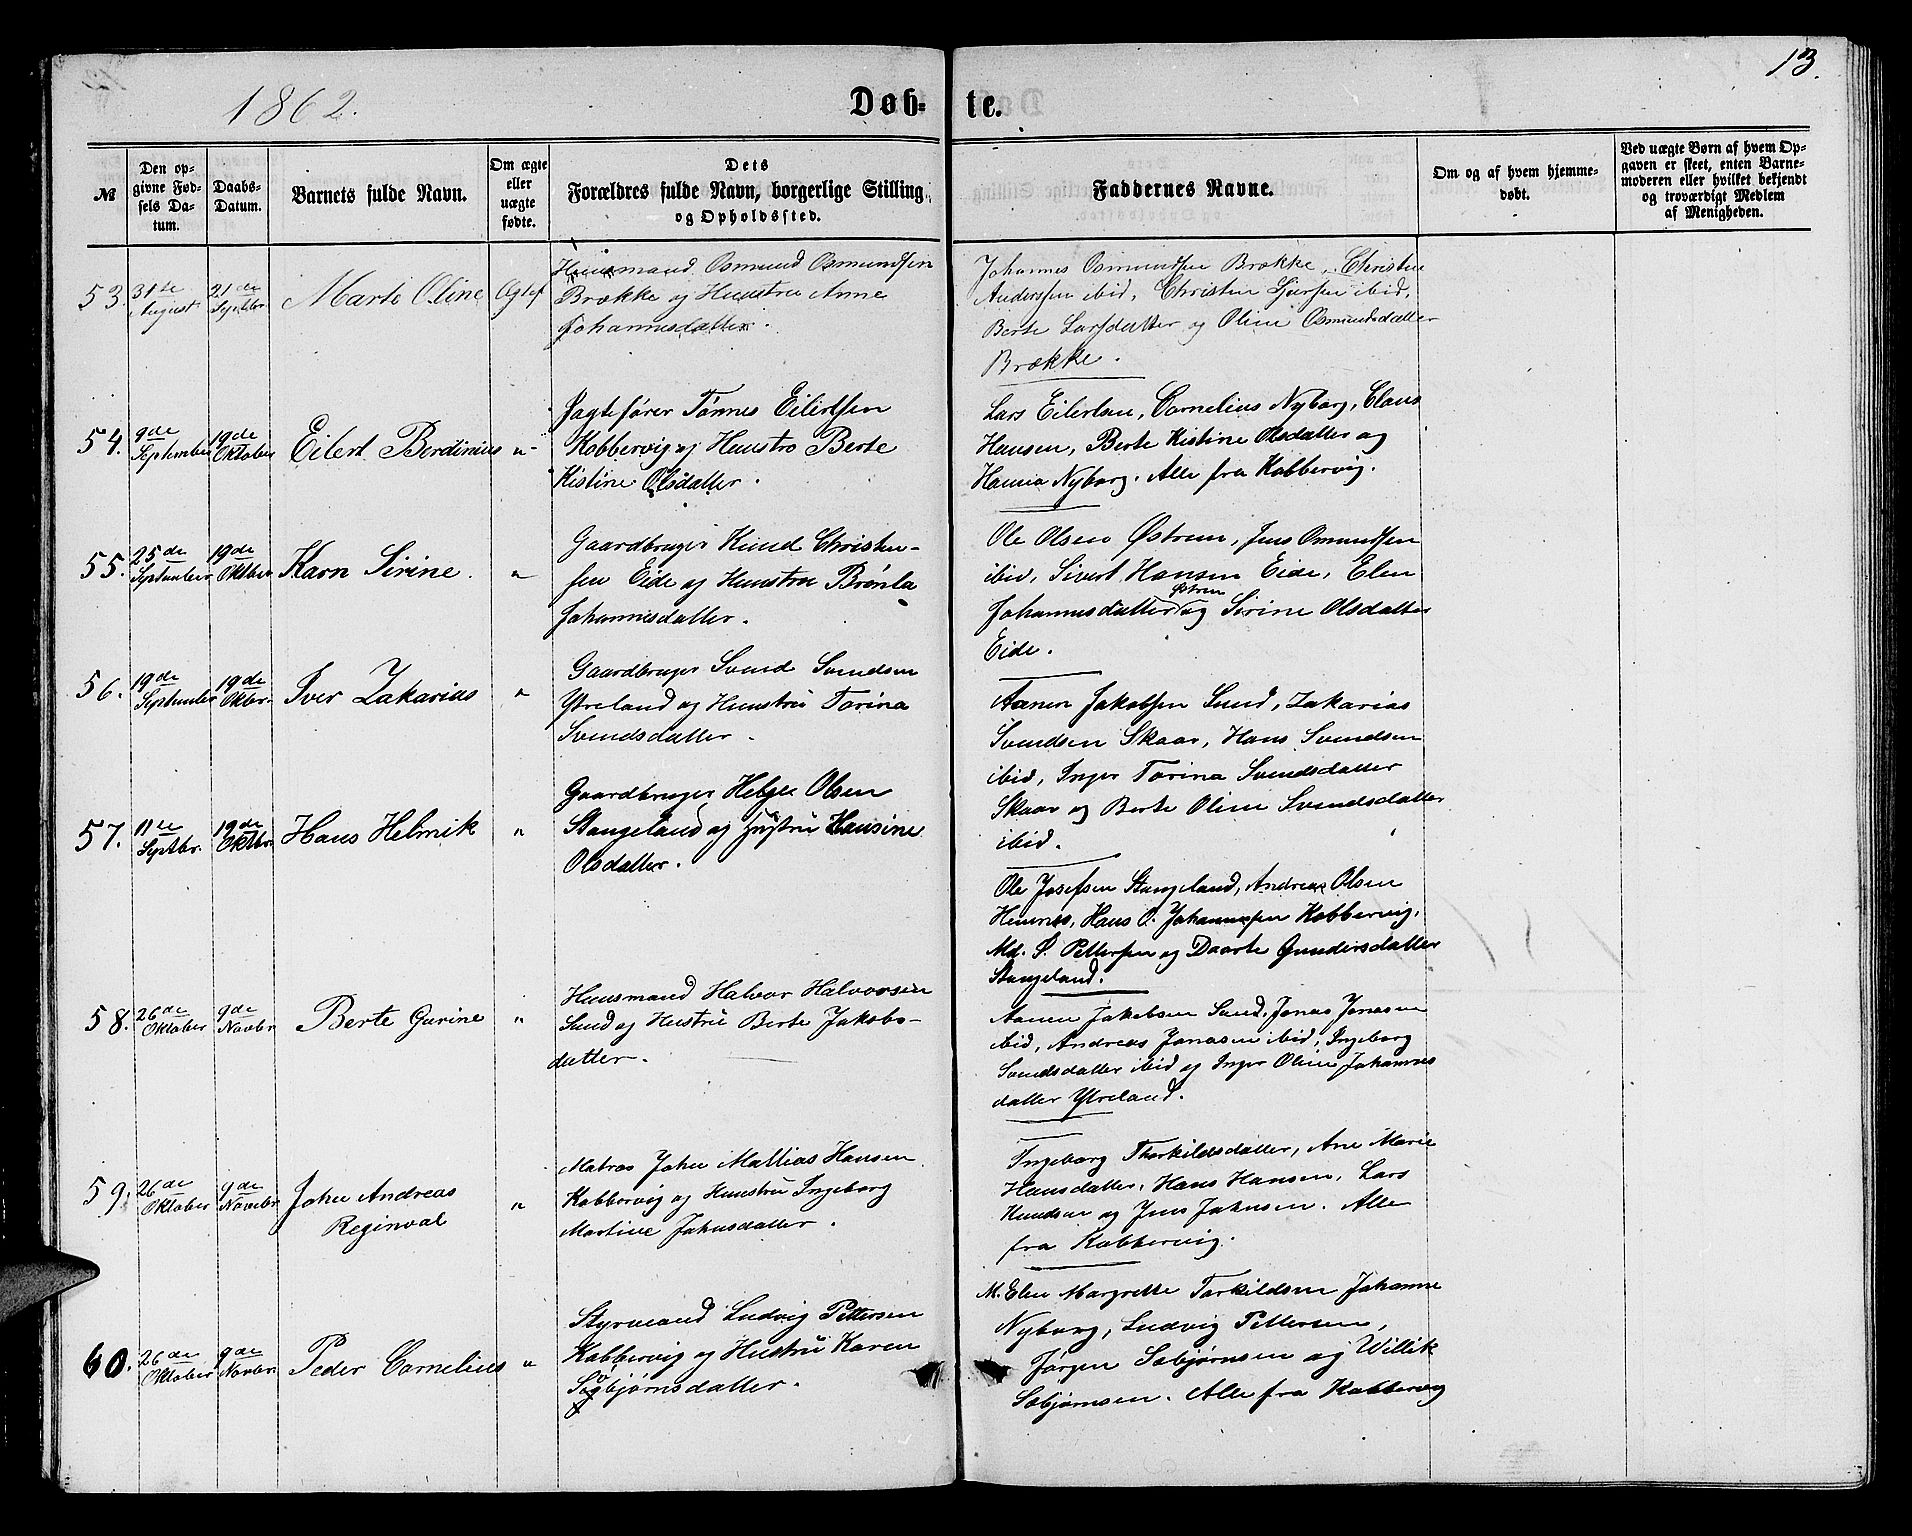 13.
1862.
Døb- te.
№
Den op-
givne Fød-
sels Da-
tum.
Daabs-
Datum.
Barnets fulde Navn.
Om ægte
eller
uægte
fødte.
Dets
Forældres fulde Navn, borgerlige Stilling
og Opholdssted.
Faddernes Navne.
Om og af hvem hjemme-
døbt.
Ved uægte Børn af hvem Op-
gaven er skeet, enten Barne-
moderen eller hvilket bekjendt
og troværdigt Medlem
af Menigheden.
53.
31te
August
21de
Septbr
Marte Oline
Ægtef
Huusmand Osmund Osmundsen
Brække og Huustru Anne
Johannesdatter.
Johannes Osmundsen Brække, Christen
Anderssen ibid, Christen ibid,
Berte Larsdatter og Oline Osmundsdatter
Brække.
54.
9de
September
19de
Oktober
Eilert Berdinius
"
Jagtefører Tønnes Eilertsen
Kobbervig og Huustro Berte
Kistine Olsdatter.
Lars Eilertsen, Cornelius Nyborg, Claus
Hansen, Berte Kistine Olsdatter og
Hansia Nyborg. Alle fra Kobbervig.
55.
25de
September
19de
Oktber
Karn Sirine.
"
Gaardbruger Knud Christen-
sen Eide og Huustru Brønla
Johannesdatter.
Ole Olsen Østrem, Jens Omundsen
ibid, Sivert Hansen Eide, Elen
Østrem
Johannesdatter og Sirine Olsdatter
Eide.
56.
19de
September
19de
Oktbr.
Iver Zakarias
"
Gaardbruger Svend Svendsen
Ytreland og Huustru Torina
Svendsdatter.
Aanen Jakobsen Sund, Zakarias
Svendsen Skaar, Hans Svendsen
ibid, Inger Torina Svendsdatter
Skaar og Berte Oline Svendsdatter
ibid.
57.
11te
Septbr.
19de
Oktbr.
Hans Helmik
"
Gaardbruger Helge Olsen
Stangeland og Hustru Hansine
Olsdatter.
Ole Josefsen Stangeland, Andreas Olsen
Hemnes, Hans O. Johannesen Kobbervig,
Md. S. Pettersen og Daarte Gundersdatter
Stangeland.
58.
26de
Oktober
9de
Novbr
Berte Gurine
"
Huusmand Halvor Halvorsen
Sund og Hustru Berte Jakobs-
datter.
Aanen Jakobsen Sund, Jonas Jonasen
ibid, Andreas Jonasen ibid, Ingeborg
Svendsdatter ibid og Inger Oline Johannes
datter Ytreland.
59.
26de
Oktober
9de
Novebr
John Andreas
Reginval
"
Matros John Mattias Hansen
Kobbervig og Huustru Ingeborg
Martine Johnsdatter.
Ingeborg Thorkildsdatter, Ane Marie
Hansdatter, Hans Hansen, Lars
Knudsen og Jens Johnsen. Alle
fra Kobbervig.
60.
26de
Oktober
9de
Novbr.
Peder Cornelius
"
Styrmand Ludvig Pettersen
Kobbervig og Hustru Karen
Sobjørnsdatter.
M. Elen Margrette Torkildsen Johanne
Nyborg, Ludvig Pettersen,
Jørgen Sobjørnsen og Willik
Sobjørnsen. Alle fra Kobbervig